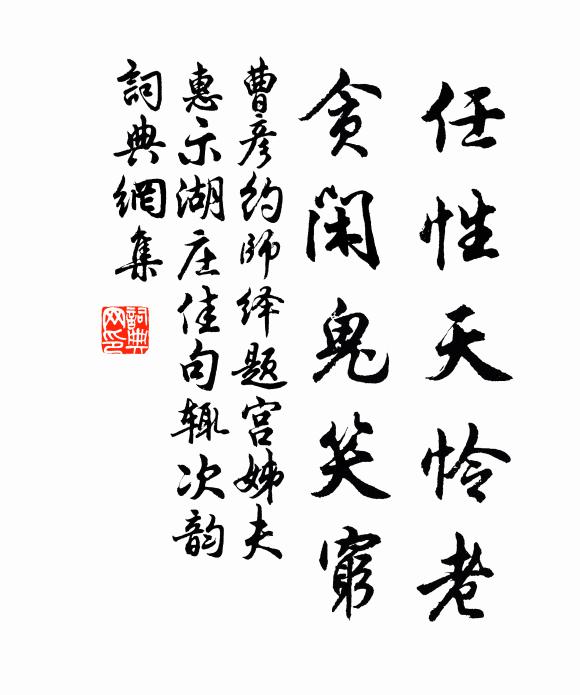 任性天怜老
贪闲鬼笑窮
曹彦约師绎题宫姊夫
惠示湖庄佳句辄次韵
詞典網集
詞典网印